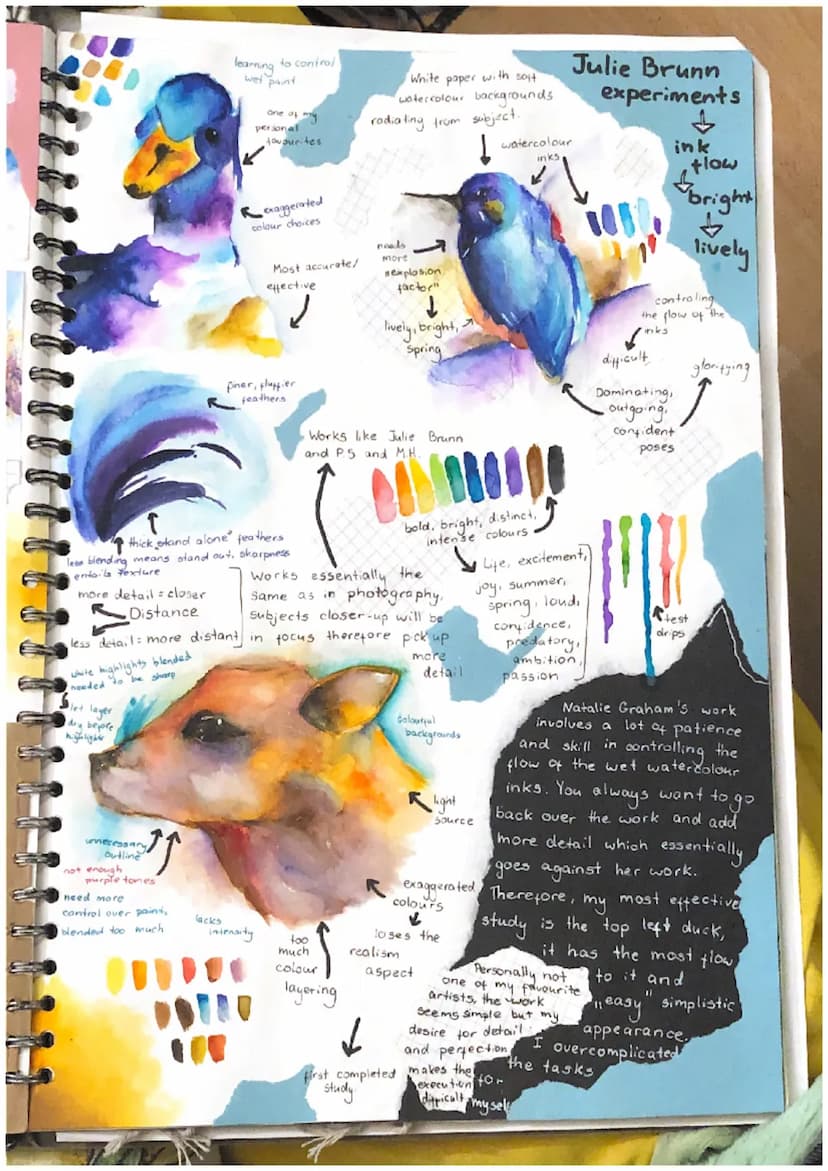 Julie Brunn
experiments
ink
flow
bright
lively
learning to control
wet paint
one of my
personal
favourites
exaggerated
colour choices
Most accurate/
effective
White paper with soft
watercolour backgrounds
radiating from subject.
watercolour
inks
needs
more
"explosion
factor"
lively, bright,
spring
controling
the flow of the
inks
difficult
glorifying
Dominating,
outgoing,
confident
poses
finer, fluffier
feathers
thick "stand alone" feathers
less blending means stand out, sharpness
entails texture
Works like Julie Brunn
and P.S and M.H.
bold, bright, distinct,
intense colours
Life, excitement,
joy, summer,
spring, loud,
confidence,
predatory,
ambition,
passion
test
drips
more detail = closer
Distance
less detail = more distant
Works essentially the
same as in photography,
subjects closer-up will be
in focus therefore pick up
more
detail
white highlights blended
needed to be sharp
let layer
dry before
highlights
colourful
backgrounds
light
source
unnecessary
outline
not enough
purple tones
need more
control over paint,
blended too much
lacks
intensity
too
much
colour
layering
exaggerated
colours
loses the
realism
aspect
first completed
study
Natalie Graham's work
involves a lot of patience
and skill in controlling the
flow of the wet watercolour
inks. You always want to go
back over the work and add
more detail which essentially
goes against her work.
Therefore, my most effective
study is the top left duck,
it has the most flow
to it and
"easy" simplistic
appearance.
I overcomplicated
the tasks
Personally not
one of my favourite
artists, the work
seems simple but my
desire for detail
and perfection
makes the
execution for
difficult myself